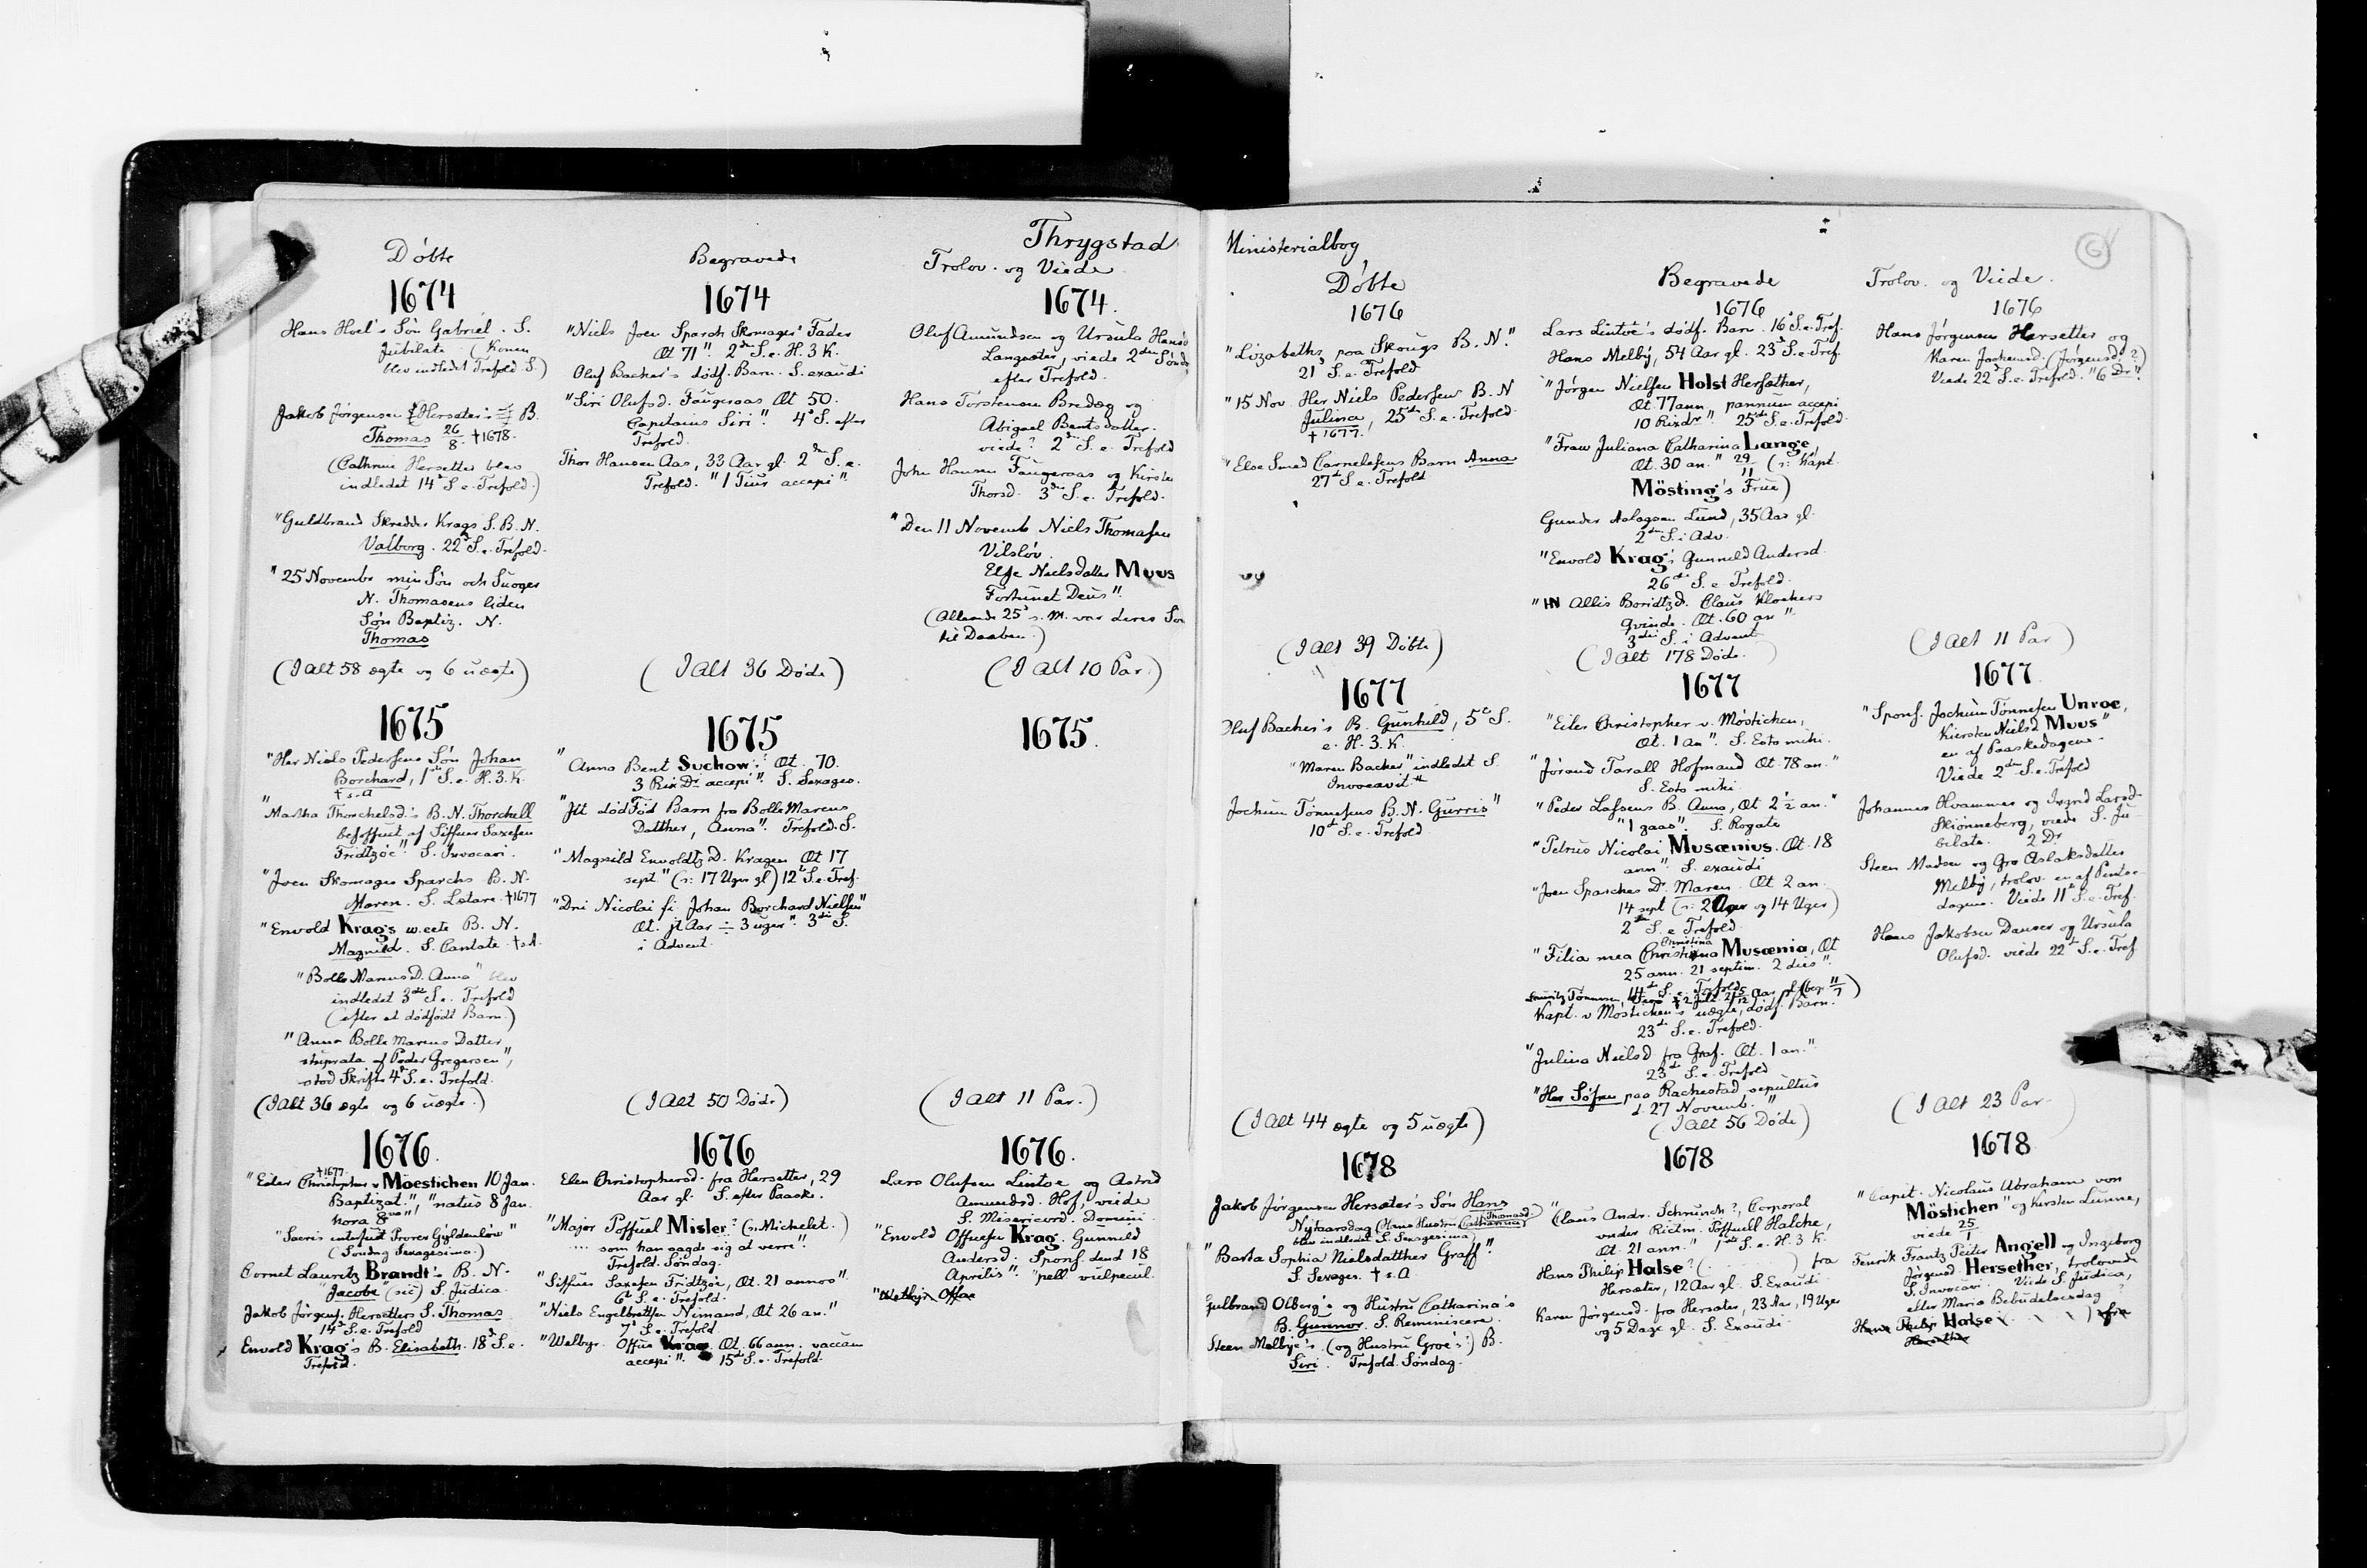 Thrygstad
Döbte
1674
Hans Hoel's Sön Gabriel. S.
Jubilate. (Konen
blev indledet Trefold. S.)
Jakob Jörgensen Hersæter's B.
Thomas 26/8. †1678.
(Cathrine Hersetter blev
indledet 14d S. e. Trefold.)
"Guldbrand Skredder Krags S. B. N.
Valborg. 22d S. e. Trefold.
"25 Novembr min Sön och Suoger
N. Thomasens liden
Sön Baptiz. N.
Thomas
(I alt 58 ægte og 6 uægte)
1675
"Her Niels Pedersens Sön Johan
Borchard, 1ste S. e. H. 3. K.
† s. a
"Martha Thorchelsd's B. N. Thorchell
besoffuit af Siffuer Saxesen
Fridtzöe". S. Invocavi.
"Joen Skomager Sparchs B. N.
Maren. S. Lætare. †1677
"Envold Krag's w.ecte B. N.
Magnild. S. Cantate. † s.A.
"Bolle Marcus D. Anna" blev
indledet 3die S. e. Trefold
(efter et dödfödt Barn.)
"Anna Bolle Marcus Datter
stuprata af Peder Gregersen",
stod Skrifte 4d S. e. Trefold.
(I Alt 36 ægte og 6 uægte.)
1676.
†1677.
"Eiler Christopher v Moestichen 10 Jan.
Baptizat.", "natus 8 Jan.
hora 8va",
"Sacris interfuit Prorex Gyldenlöw"
(Söndag Sexagesima.)
Cornet Lauritz Brandt's B. N.
"Jacobe" (sic) S. Judica.
Jakob Jörgens. Hersetters S. Thomas
14d S. e. Trefold
Envold Krag's B. Elisabeth. 18d S. e.
Trefold.
Begravede
1674
"Niels Joen Sparch Skomagers Fader
Æt 71". 2den S. e. H. 3 K.
Oluf Backer's dödf. Barn. S. exaudi
"Siri Olufsd. Faugeraas Æt 50.
Capitains Siri". 4d S. efter
Trefold.
Thor Hansen Aas, 33 Aar gl. 2den S. e.
Trefold. "1 Tiur accepi".
(I Alt 36 Döde)
1675
"Anna Bent Suchow:? Æt. 70.
3 Rix Dr accepi". S. Sexages.
"Jtt död Föd Barn fra Bolle Marcus
Datther, Anna". Trefold. S.
"Magnild Envoldtz D. Kragen Æt 17
sept." (ɔ: 17 Uger gl) 12te S. e. Tref.
"Dni Nicolai fi. Johan Borchard Nielsen"
Æt. jt Aar ÷ 3 uger". 3die S.
i Advent.
(I Alt 50 Döde)
1676
Elen Christophersd. fra Hersetter, 29
Aar gl. S. efter Paaske.
"Major Poffuel Misler? (ɔ: Michelet.)
.... som han sagde sig at verre".
Trefold. Söndag.
"Siffuer Saxesen Fridtzöe, Æt. 21 annos".
6te S. e. Trefold.
"Niels Engelbrettsen Nimand, Æt 26 an."
7d S. e. Trefold
"Welbyr. Offue Krag. Æt. 66 ann. vaccam
accepi". 15de S. e. Trefold.
Trolov. og Viede
1674.
Oluf Amundsen og Ursula Hansd
Langsæter, viede 2den Sönd
efter Trefold.
Hans Torstensen Bredæg og
Abigael Bentsdatter.
viede? 2den S. e. Trefold
John Hansen Faugeraas og Kirsten
Thorsd. 3die S. e. Trefold.
"Den 11 Novemb Niels Thomasen
Vilslöv.
Else Nielsdatter Muus
Fortunet Deus".
(Allerede 25d s. M. var deres Sön
til Daaben.)
(I Alt 10 Par.)
1675.
(I Alt 11 Par.)
1676.
Lars Olufsen Lintoe og Astrid
Amundsd. Hof, viede
S. Misericord. Domini.
"Envold Offuesen Krag. Gunneld
Andersd. Sponf. dend 18
Aprilis". "pell vulpecul.
Ministerialbog
6
Döbte
1676
"Lizabeths paa Skougs B. N."
21d S. e. Trefold
"15 Nov. Her Niels Pedersen B. N
Julina, 25de S. e. Trefold.
†1677.
"Else Smed Cornelesens Barn Anna
27de S. e. Trefold
(I Alt 39 Döbte)
1677
Oluf Backer's B. Gunhild, 5te S.
e. H. 3. K.
"Maren Backer" indledet S.
Invocavit
Jochum Tönnesens B. N. Gurris"
10de S. e. Trefold
(I Alt 44 ægte og 5 uægte)
1678
Jakob Jörgensen Hersæter's Sön Hans
Nytaarsdag (Hans Hustru Catharina Thomasd.
blev indledet S. Sexagesima)
"Barta Sophia Nielsdatther Graff".
S. Sexages. † s. a.
Gulbrand Olberg's og Hustru Catharina's
B. Gunnor. S. Reminiscere.
Steen Melbye's (og Hustru Groe's:) B.
Siri. Trefold. Söndag.
Begravede
1676
Lars Lintoe's dödf. Barn. 16d S. e. Tref.
Hans Melby, 54 Aar gl. 23d S. e. Tref.
"Jörgen Nielsen Holst Hersæther,
Æt. 77 ann. pannum accepi
10 Rixdr". 25de S. e. Trefold.
"Fraw Juliana Catharina Lange,
Æt. 30 an." 29/11 (ɔ: Kapt.
Mösting's Frue)
Gunder Aslagsen Lund, 35 Aar gl.
2den S. i Adv.
"Envold Krag's Gunneld Andersd.
26de S. e. Trefold.
"IN Allis Boridtzd. Claus Klockers
qvinde. Æt. 60 an".
3die S. i Advent
(I Alt 178 Döde.)
1677
"Eiler Christopher v. Möstichen,
Æt. 1 an". S. Esto mihi.
"Jörand Tarall Hofmand Æt. 78 an."
S. Esto mihi
"Peder Lassens B. Anna, Æt 2 1/2 an."
"1 gaas". S. Rogate
"Petrus Nicolai Musænius. Æt. 18
ann". S. exaudi
"Joen Sparches Dr. Maren. Æt 2 an.
14 sept (ɔ: 2 Aar og 14 Uger)
2den S. e Trefold
"Filia mea Christina Musænia, Æt
25 ann. 21 septim. 2 dies".
14de S. e. Trefold
Kapt. v Möstichen's uægte, dödf. Barn.
23de S. e. Trefold.
"Julina Nielsd fra Graf. Æt. 1 an."
23de S. e. Trefold
"Her Söfren paa Rachestad sepultus
d. 27 Novemb."
(I alt 56 Döde)
1678
"Claus Andr. Schrunch?, Corporal
under Ritm. Poffuell Halche,
Æt. 21 ann." 1ste S. e. H. 3 K.
Hans Philip Halse? (. . . . ) fra
Hersæter, 12 Aar gl. S. Exaudi
Karen Jörgensd. fra Hersæter, 23 Aar, 19 Uger
og 5 Dage gl. S. Exaudi
Trolov. og Viede.
1676
Hans Jörgensen Hersetter og
Karen Jochumsd. (Jörgensd. ?)
Viede 22d S. e. Trefold. "6 Dr".
(I alt 11 Par)
1677
"Sponf. Jochum Tönnesen Unroe,
Kiersten Nielsd Muus"
en af Paaskedagene.
Viede 2den S. e. Trefold
Johannes Hvammer og Ingrid Larsd.
Skiönneberg, viede S. Ju-
bilate. 2 Dr
Steen Madsen og Gro Aslaksdatter
Melby, trolov. en af Pintse-
dagene. Viede 11te S. e. Tref.
Hans Jakobsen Danser og Ursula
Olufsd. viede 22de S. e. Tref
(I alt 23 Par.
1678
"Capit. Nicolaus Abraham von
Möstichen" og Kirsten Lunne,
viede 25/1
Fenrik Frantz Peiter Angell og Ingeborg
Jörgensd Hersether, trolovede
S. Invocavi. Viede S. Judica,
eller Mariæ Bebudelsesdag?
Hans Philip Halse ( ) fra
Hersether